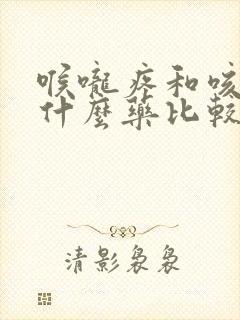 喉嚨疼和咳
什麼藥比較
清影裊裊